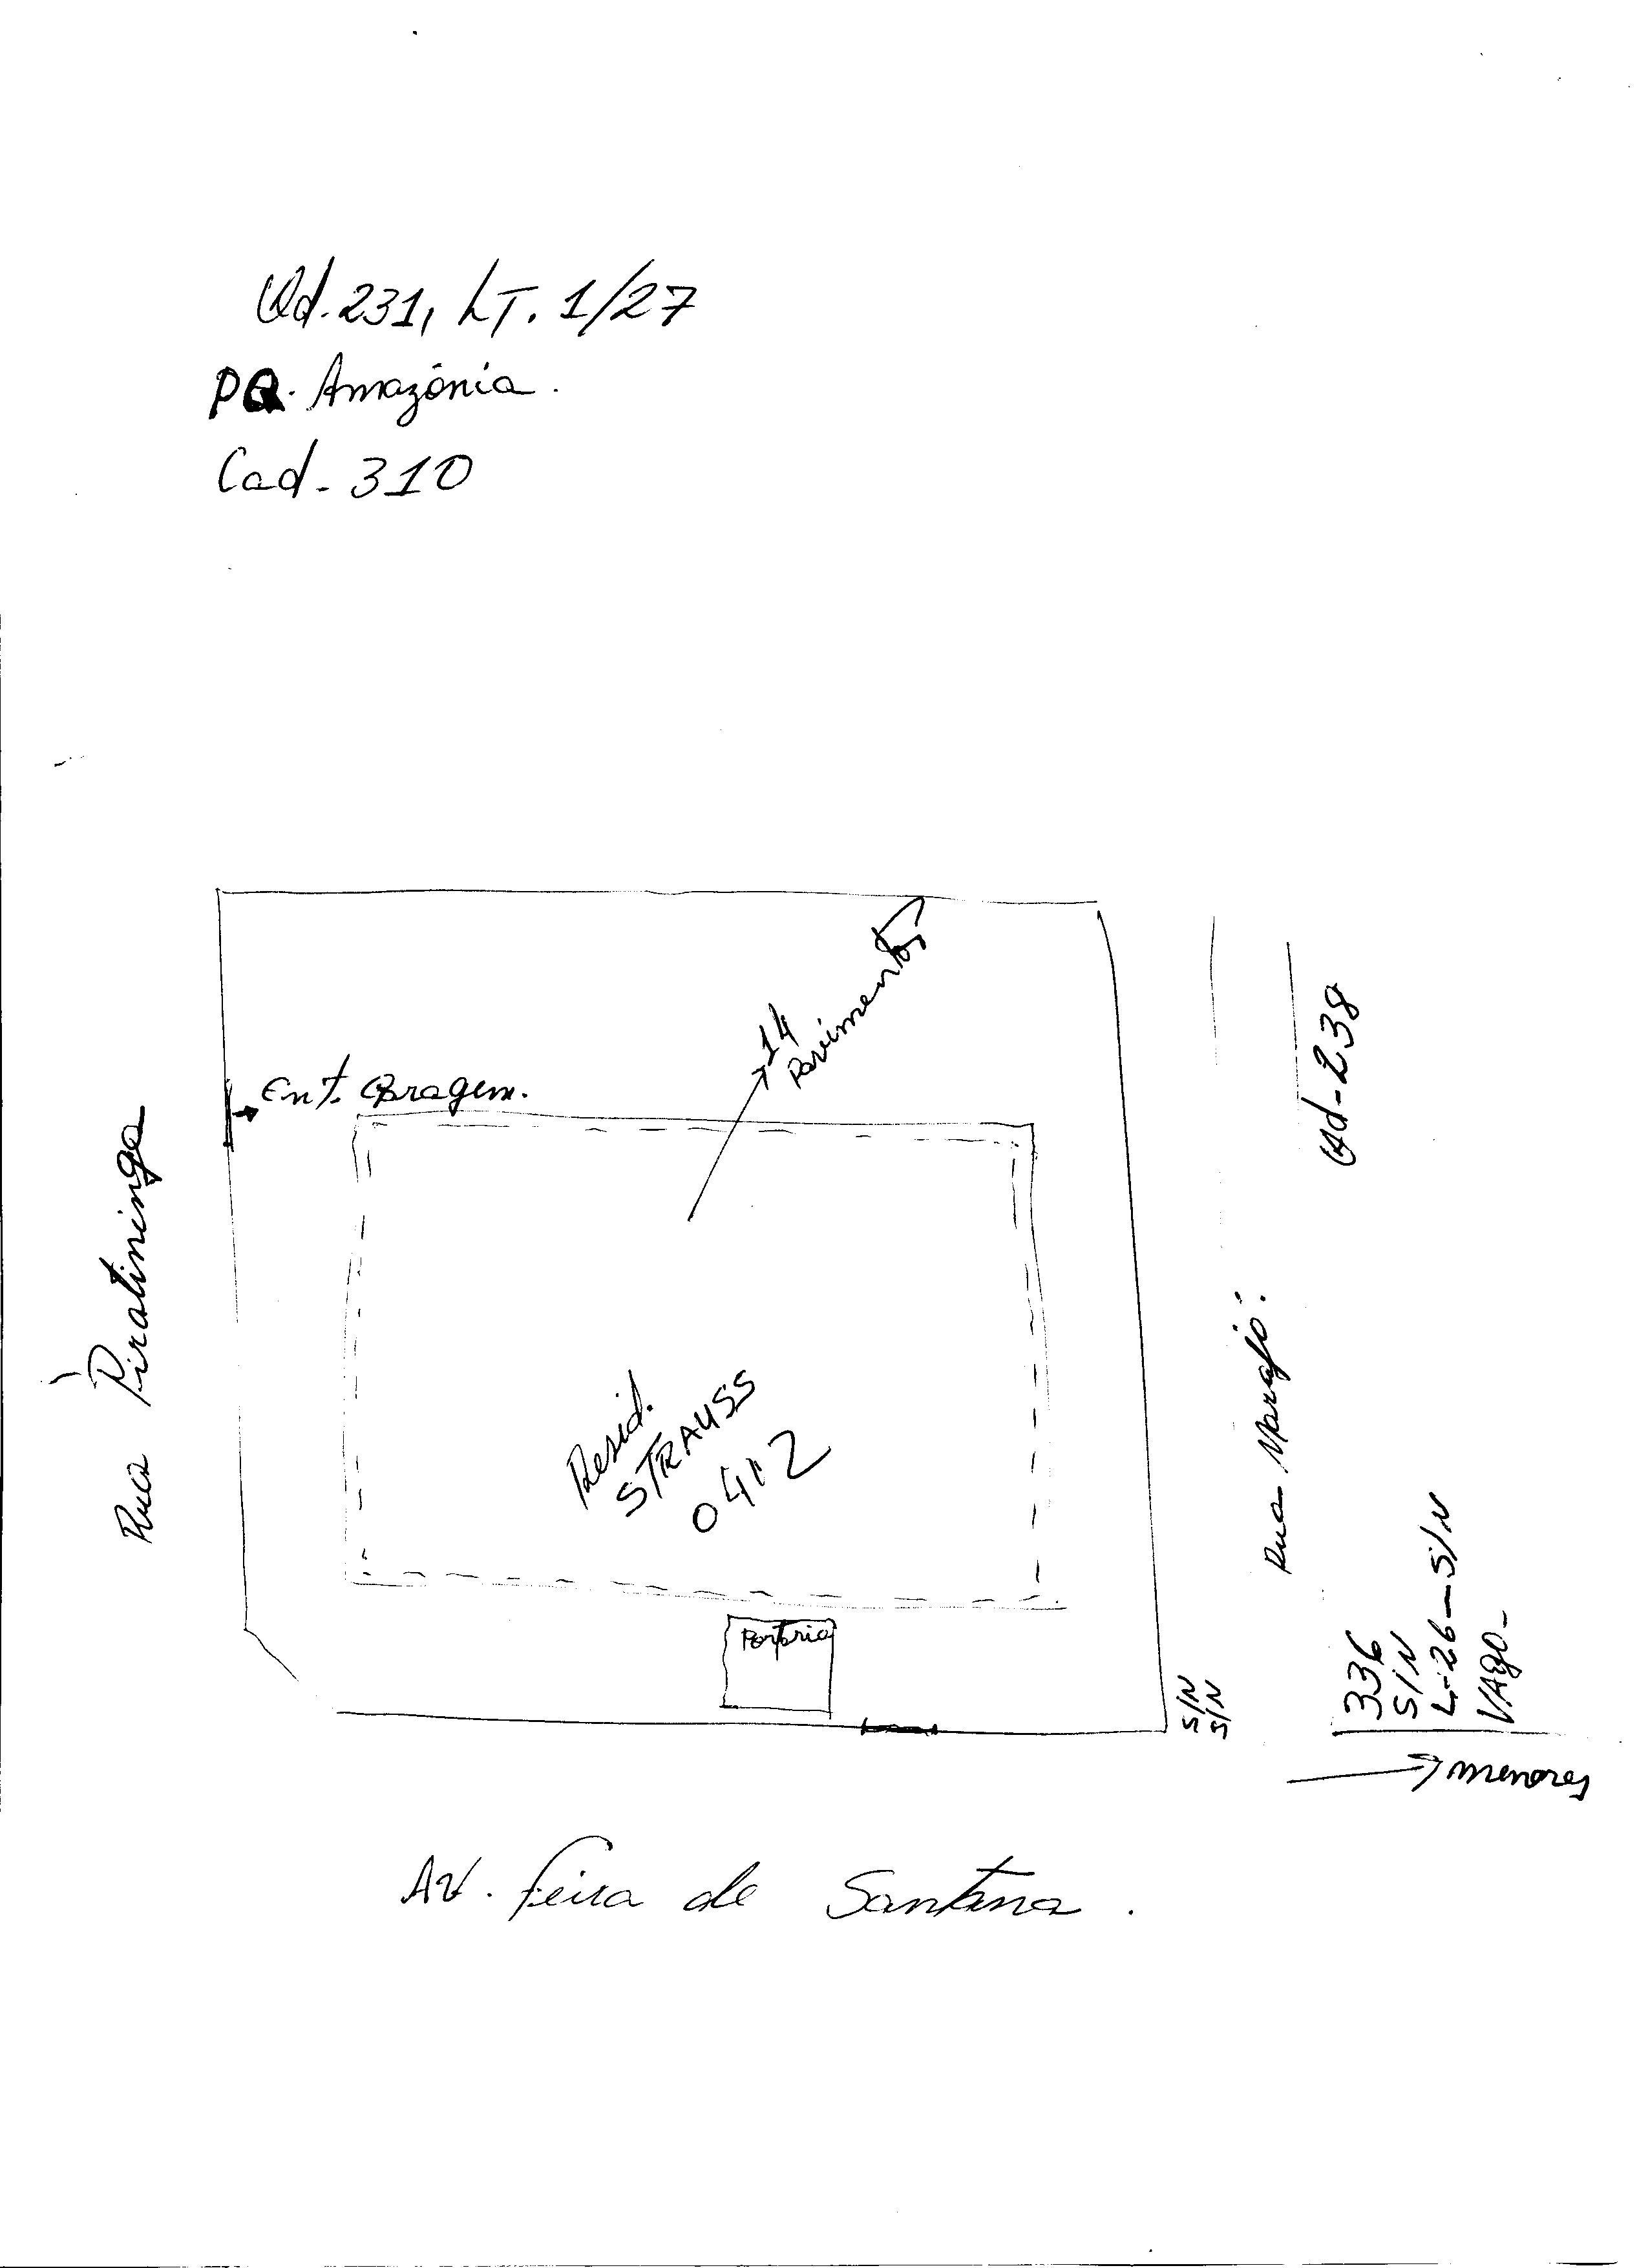 Qd. 231, LT. 1/27
PQ. Amazônia.
Cad. 310
14
Pavimentos
Ent. Garagem.
Qd-238
Rua Piratininga
Rua Marajó.
Resid.
STRAUSS
0412
Portaria
S/N
S/N
336
S/N
L-26-S/N
VAgo-
menores
Av. Feira de Santana.